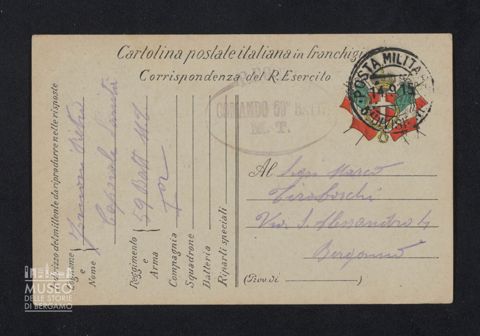 Cartolina postale italiana in franchigia
Corrispondenza del R. Esercito
POSTA MILITARE
14.9.15
COMANDO
M. T.
Indirizzo del mittente da riprodurre nelle risposte
Cognome e Nome
Caporale Sanità
Reggimento e Arma
59 Batt M.T.
Compagnia
Squadrone
Batteria
Riparti speciali
Al Sigr Marco
Tiraboschi
Via S. Alessandro 4
Bergamo
(Prov. di)
MUSEO
DELLE STORIE
DI BERGAMO